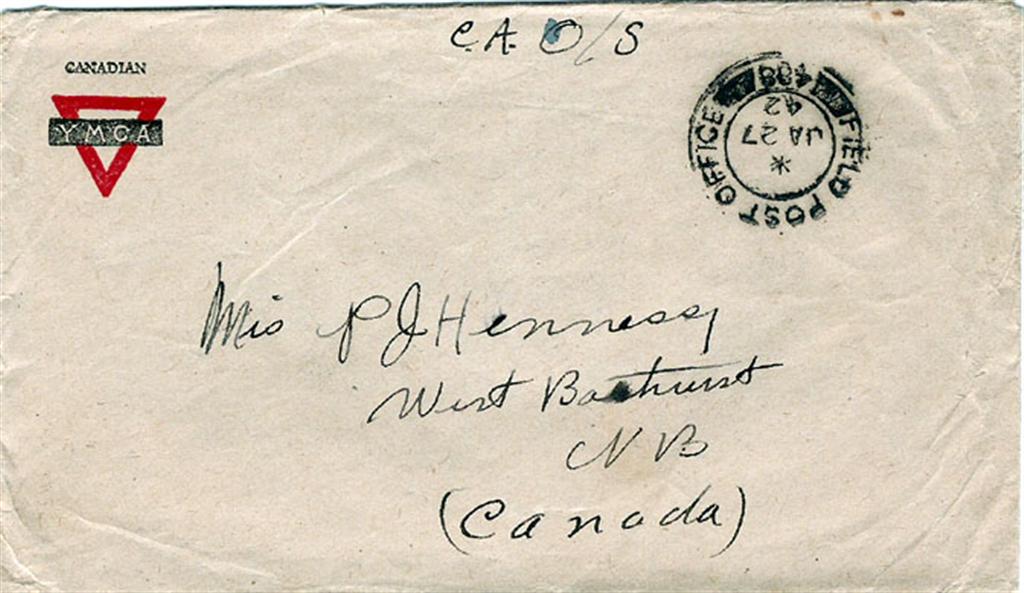 C.A. O/S
CANADIAN
YMCA
FIELD POST OFFICE
408
*
JA 27
42
Mis P J Hennessy
West Bathurst
N B
(Canada)